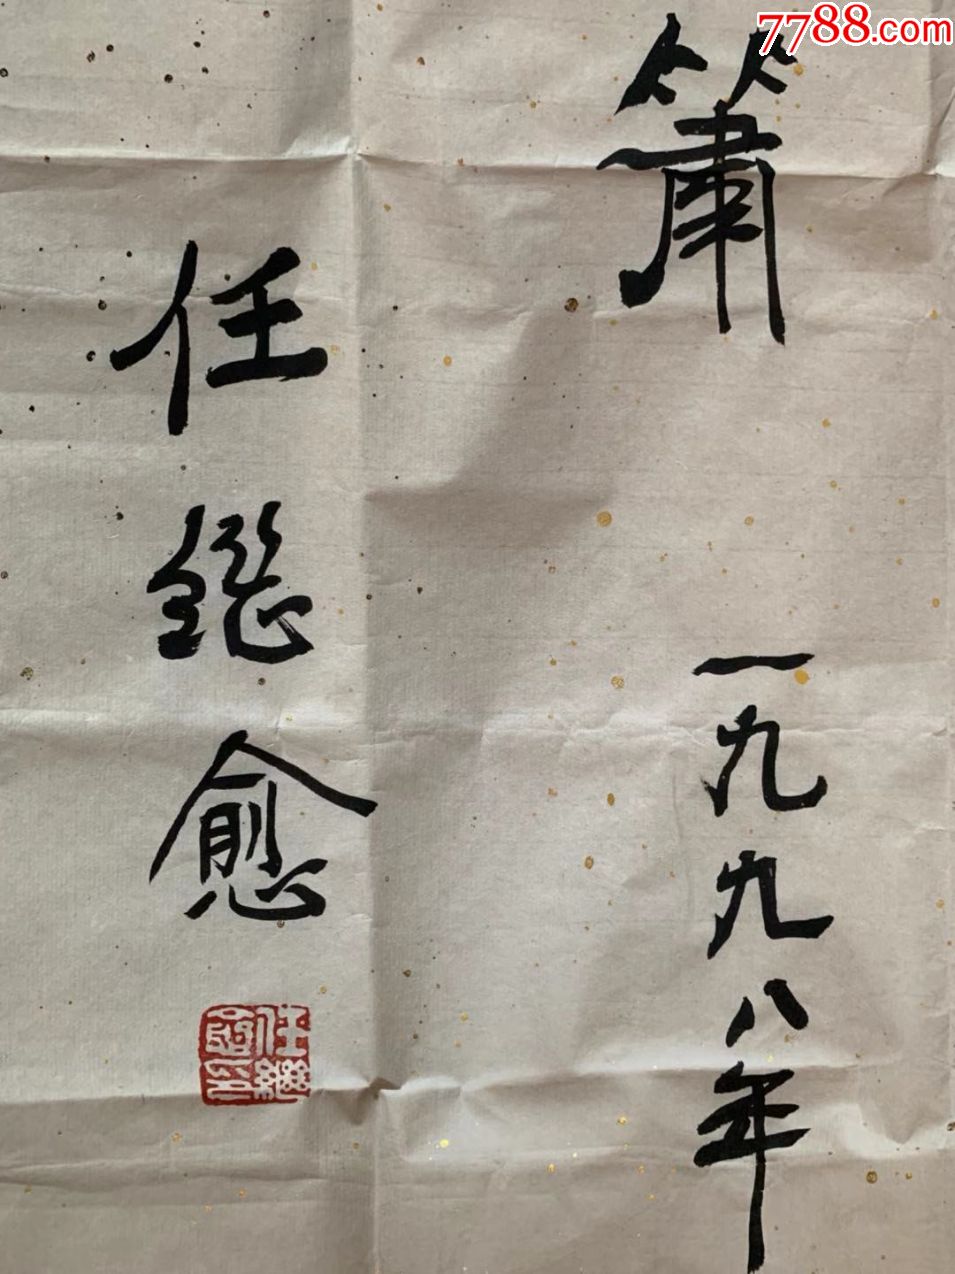 7788.com
簫
一九九八年
任继愈
任继愈印